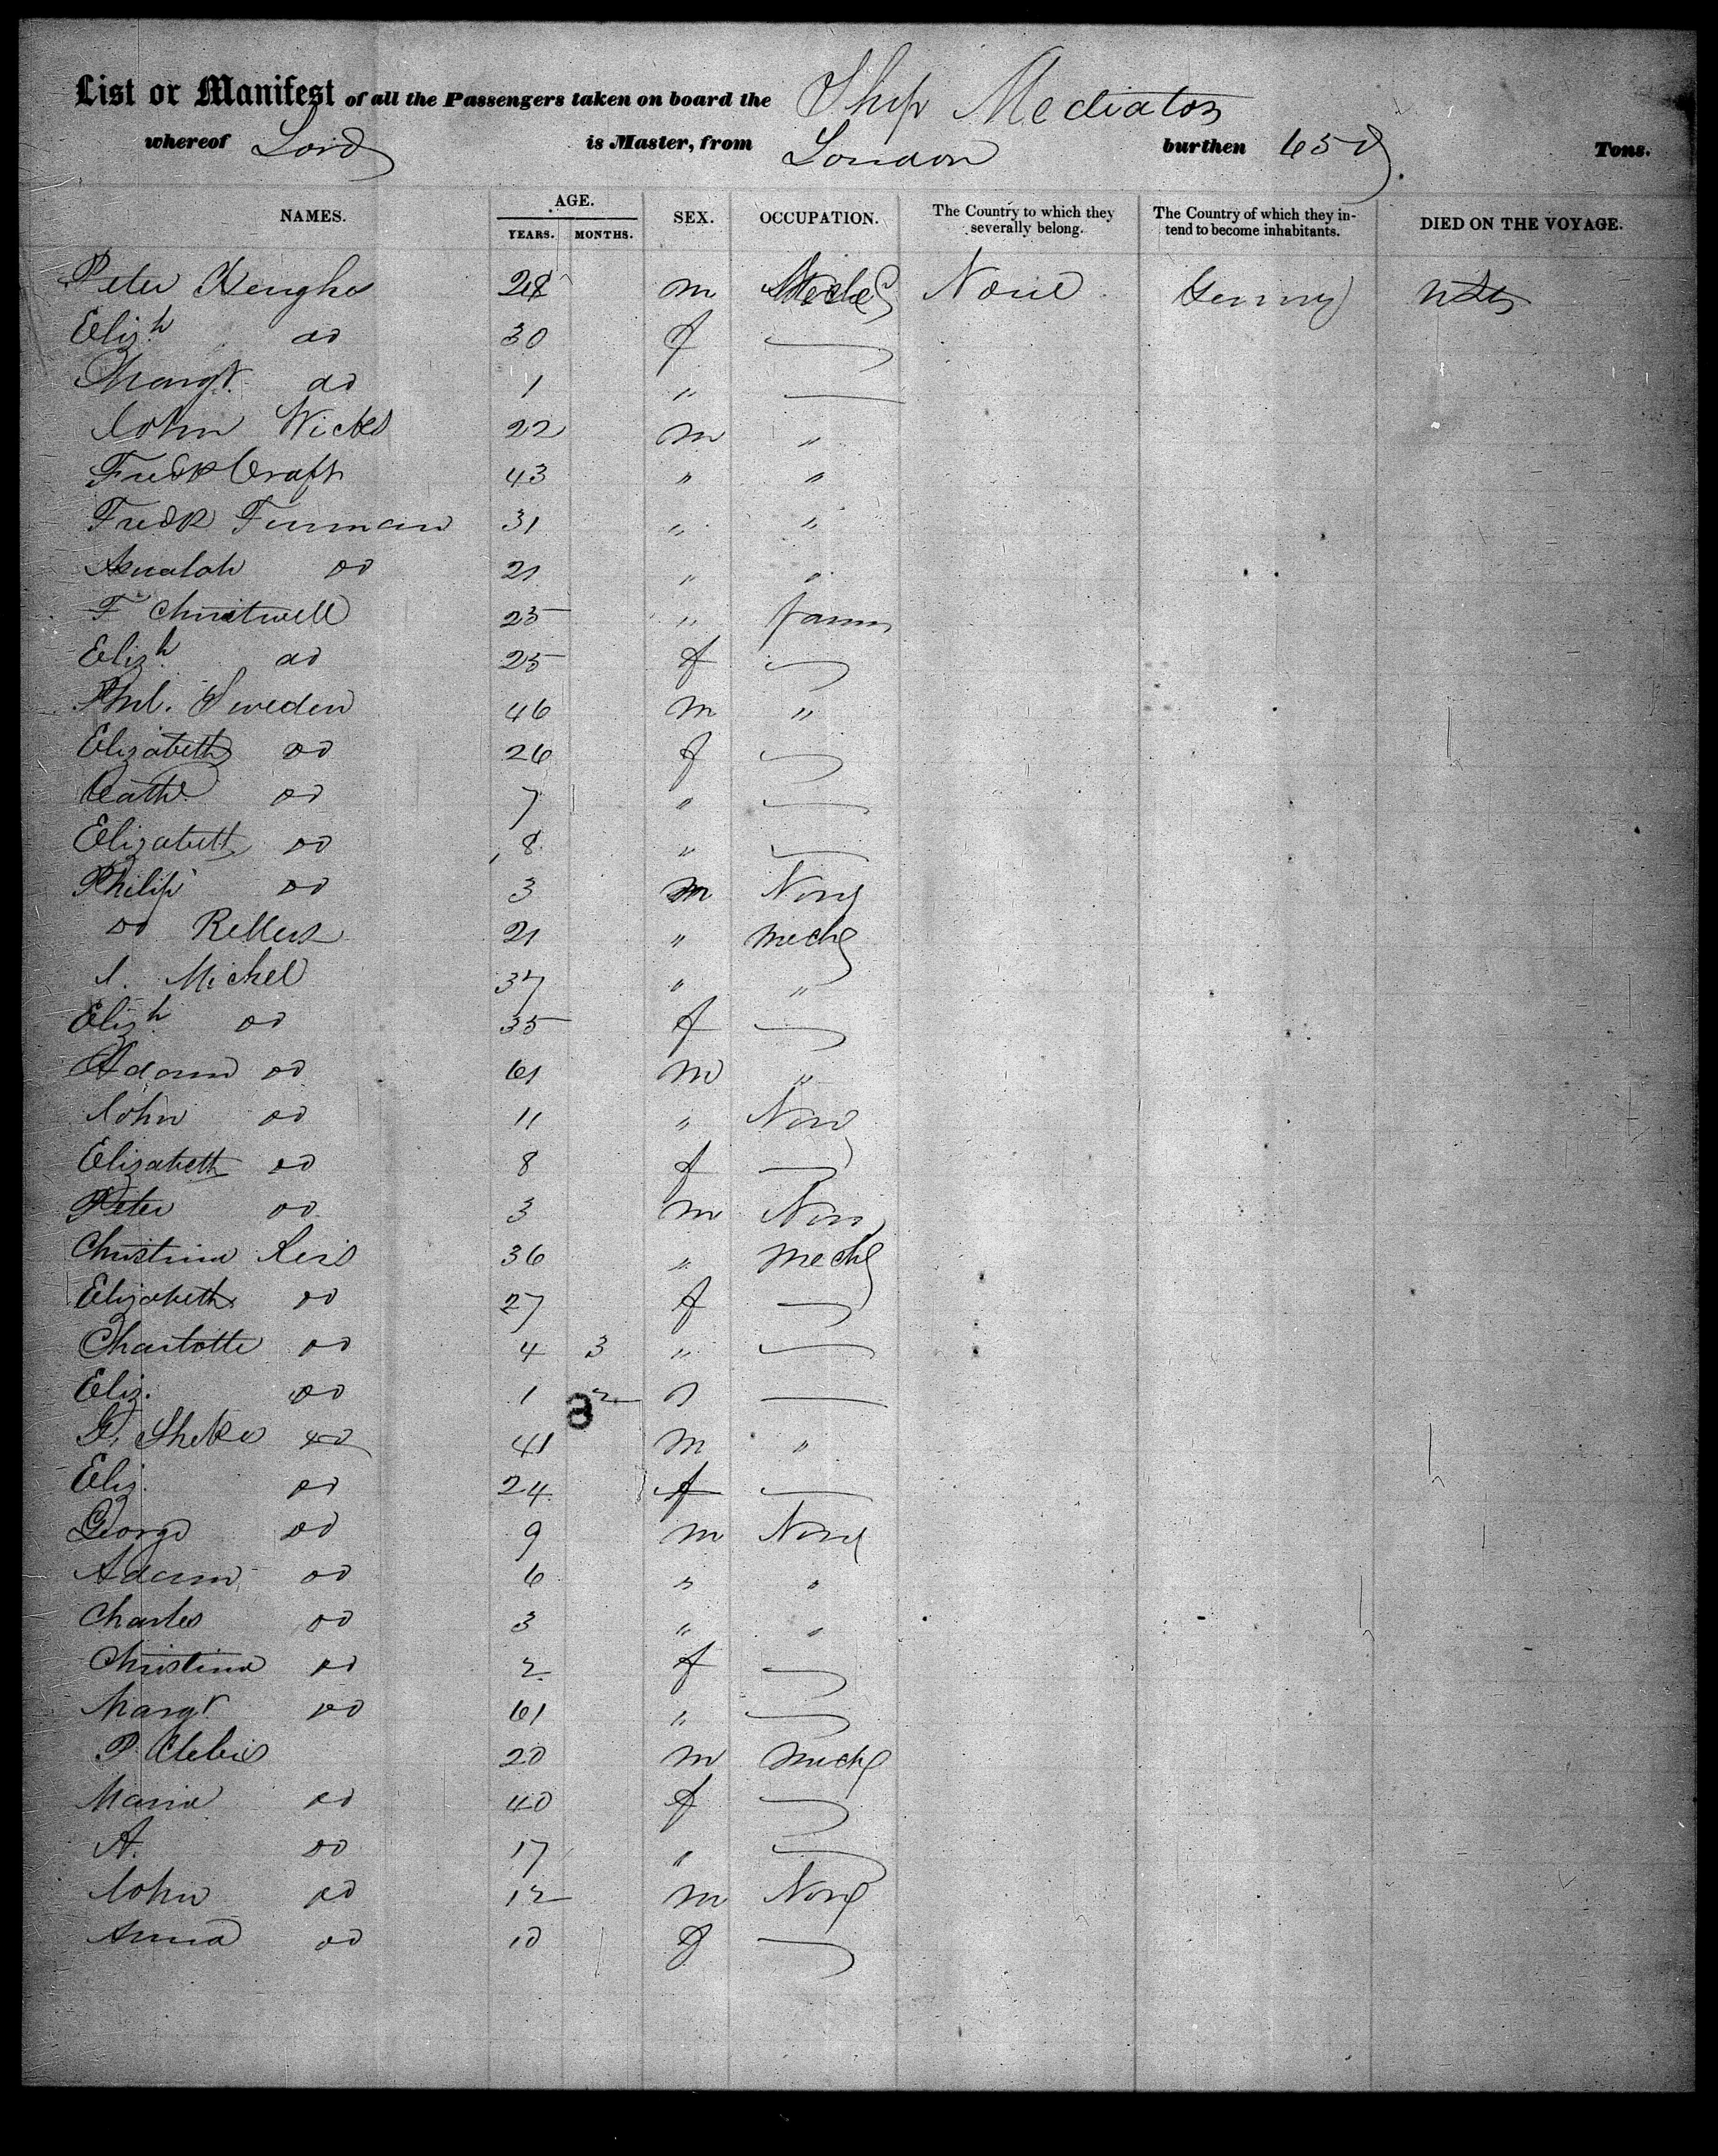 List or Manifest of all the Passengers taken on board the Ship Mediator
whereof Lord is Master, from London burthen 650 Tons.
NAMES. AGE. YEARS. MONTHS. SEX. OCCUPATION. The Country to which they severally belong. The Country of which they intend to become inhabitants. DIED ON THE VOYAGE.
Peter 28 m Mech None
Elizh do 30 f
Margt do 1 "
John Wicks 22 m "
Fredk Craft 43 " "
Fredk Furman 31 " "
do 21 " "
F Christwell 25 " farmr
Elizh do 25 f
Phil. Sweden 46 m "
Elizabeth do 26 f
Cath do 7 "
Elizabeth do 8 "
Philip do 3 m None
do 21 " mech
J. Michel 37 " "
Elizh do 35 f
Adam do 61 m "
John do 11 " None
Elizabeth do 8 f
Peter do 3 m None
Christina Reis 36 " mech
Elizabeth do 27 f
Charlotte do 4 3 "
Eliz. do 1 2 "
G. Sheke do 41 m "
Eliz. do 24 f
George do 9 m None
Adam do 6 " "
Charles do 3 " "
Christina do 2 f
Margt do 61 "
P. 20 m mech
Maria do 40 f
A. do 17 "
John do 12 m None
Anna do 10 f
8